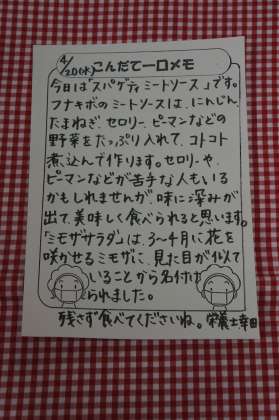 4/20(水)こんだて一口メモ
今日は「スパゲティミートソース」です。
フナキボのミートソースは、にんじん、
たまねぎ、セロリー、ピーマンなどの
野菜をたっぷり入れて、コトコト
煮込んで作ります。セロリーや、
ピーマンなどが苦手な人もいる
かもしれませんが、味に深みが
出て、美味しく食べられると思います。
「ミモザサラダ」は、3〜4月に花を
咲かせるミモザに、見た目が似て
いることから名付け
られました。
残さず食べてくださいね。栄養士幸田